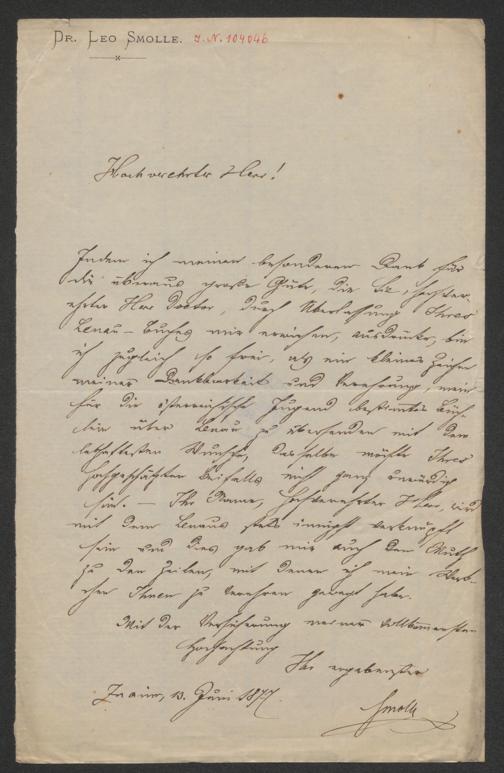 DR. LEO SMOLLE. J. N. 104046
Hochverehrter Herr!
Indem ich meinen besonderen Dank für
die überaus große Güte, die Sie, hochver-
ehrter Herr Doctor, durch Überlassung Ihres
Lenau-Buches mir erwiesen, ausdrücke, bin
ich zugleich so frei, als ein kleines Zeichen
meiner Dankbarkeit und Verehrung, mein
für die österreichische Jugend bestimmtes Büch-
lein über Lenau zu übersenden mit dem
lebhaftesten Wunsche, dasselbe möchte Ihres
hochgeschätzten Beifalls nicht ganz unwürdig
sein. — Ihr Name, hochverehrter Herr, wird
mit dem Lenaus stets innigst verknüpft
sein und dies gab mir auch den Muth
zu den Zeilen, mit denen ich mein Werk-
chen Ihnen zu verehren gewagt habe.
Mit der Versicherung meiner vollkommensten
Hochachtung
Ihr ergebenster
Znaim, 13. Juni 1877.
Smolle